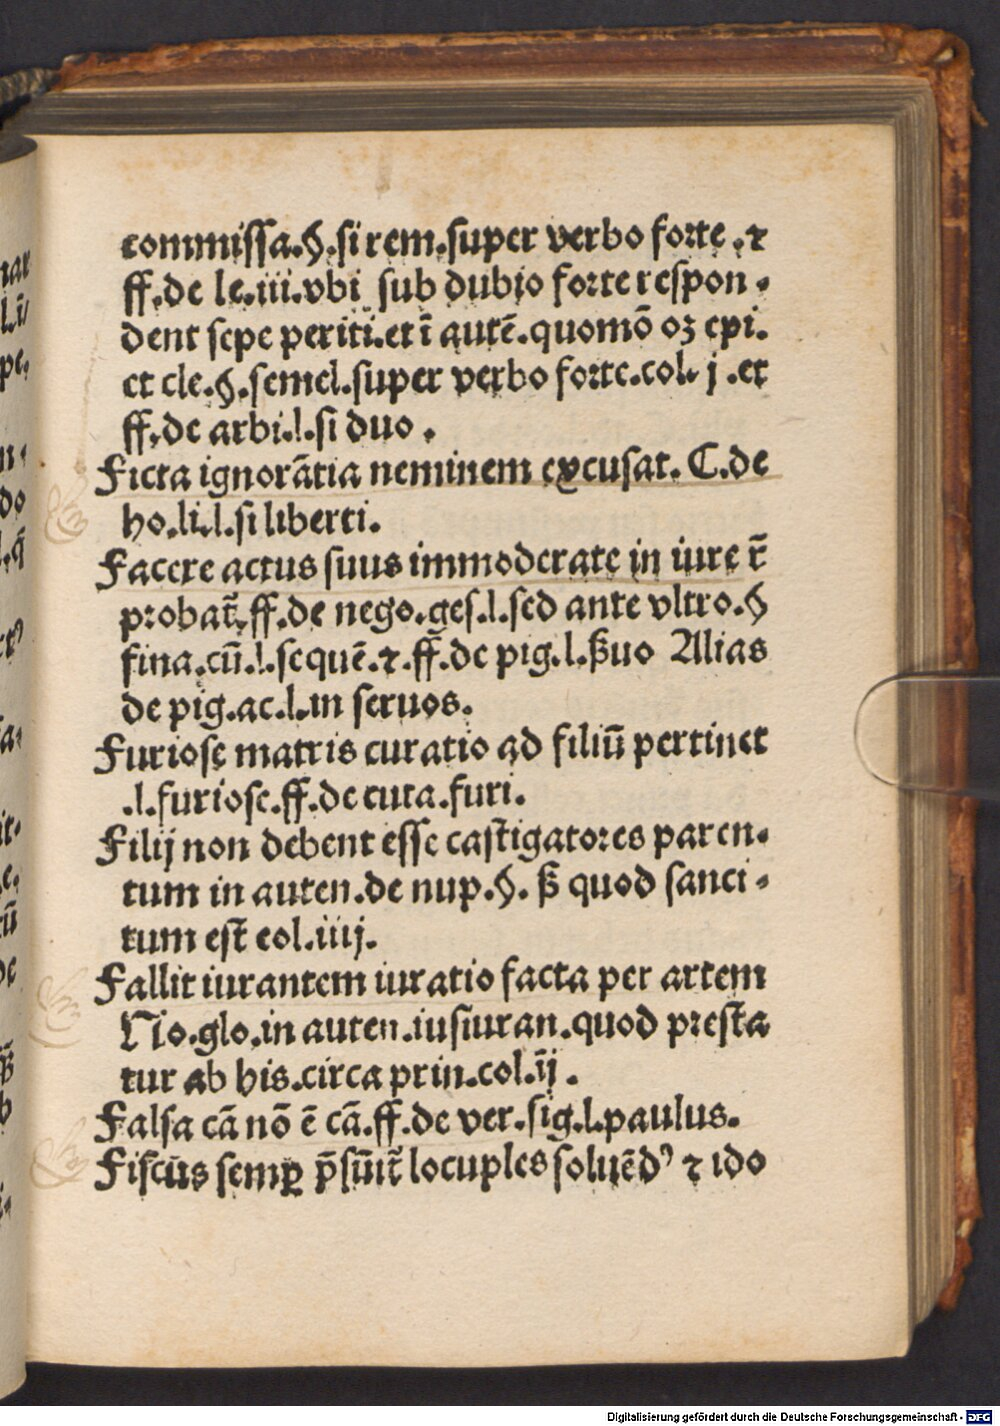 commissa.§.si rem.super verbo forte .⁊
ff.de le.iii.vbi sub dubio forte respon-
dent sepe periti.et ī autē.quomō oꝫ epi.
et cle.§.semel.super verbo forte.col. j .et
ff.de arbi.l.si duo .
Ficta ignorātia neminem excusat. C.de
ho.li.l.si liberti.
Facere actus suus immoderate in iure r̄
probat᷑.ff.de nego.ges.l.sed ante vltro.§
fina.cū.l.sequē.⁊.ff.de pig.l.ẞuo Alias
de pig.ac.l.in seruos.
Furiose matris curatio ad filiū pertinet
.l.furiose.ff.de cura.furi.
Filij non debent esse castigatores paren-
tum in auten.de nup.§. ẞ quod sanci-
tum est col.iiij.
Fallit iurantem iuratio facta per artem
No.glo.in auten.iusiuran.quod presta
tur ab his.circa prin.col.ij .
Falsa cā nō ē cā.ff.de ver.sig.l.paulus.
Fiscus semꝑ p̄sūit᷑ locuples soluēdꝰ ⁊ ido
nar
pe.
do
de
Digitalisierung gefördert durch die Deutsche Forschungsgemeinschaft - DFG